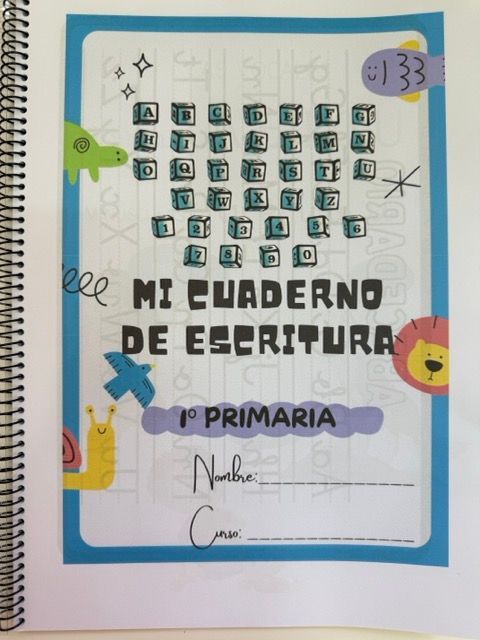 A B C D E F G
H I J K L M N
O Q P R S T U
V W X Y Z
1 2 3 4 5 6
7 8 9 0
MI CUADERNO
DE ESCRITURA
1º PRIMARIA
Nombre:
Curso: